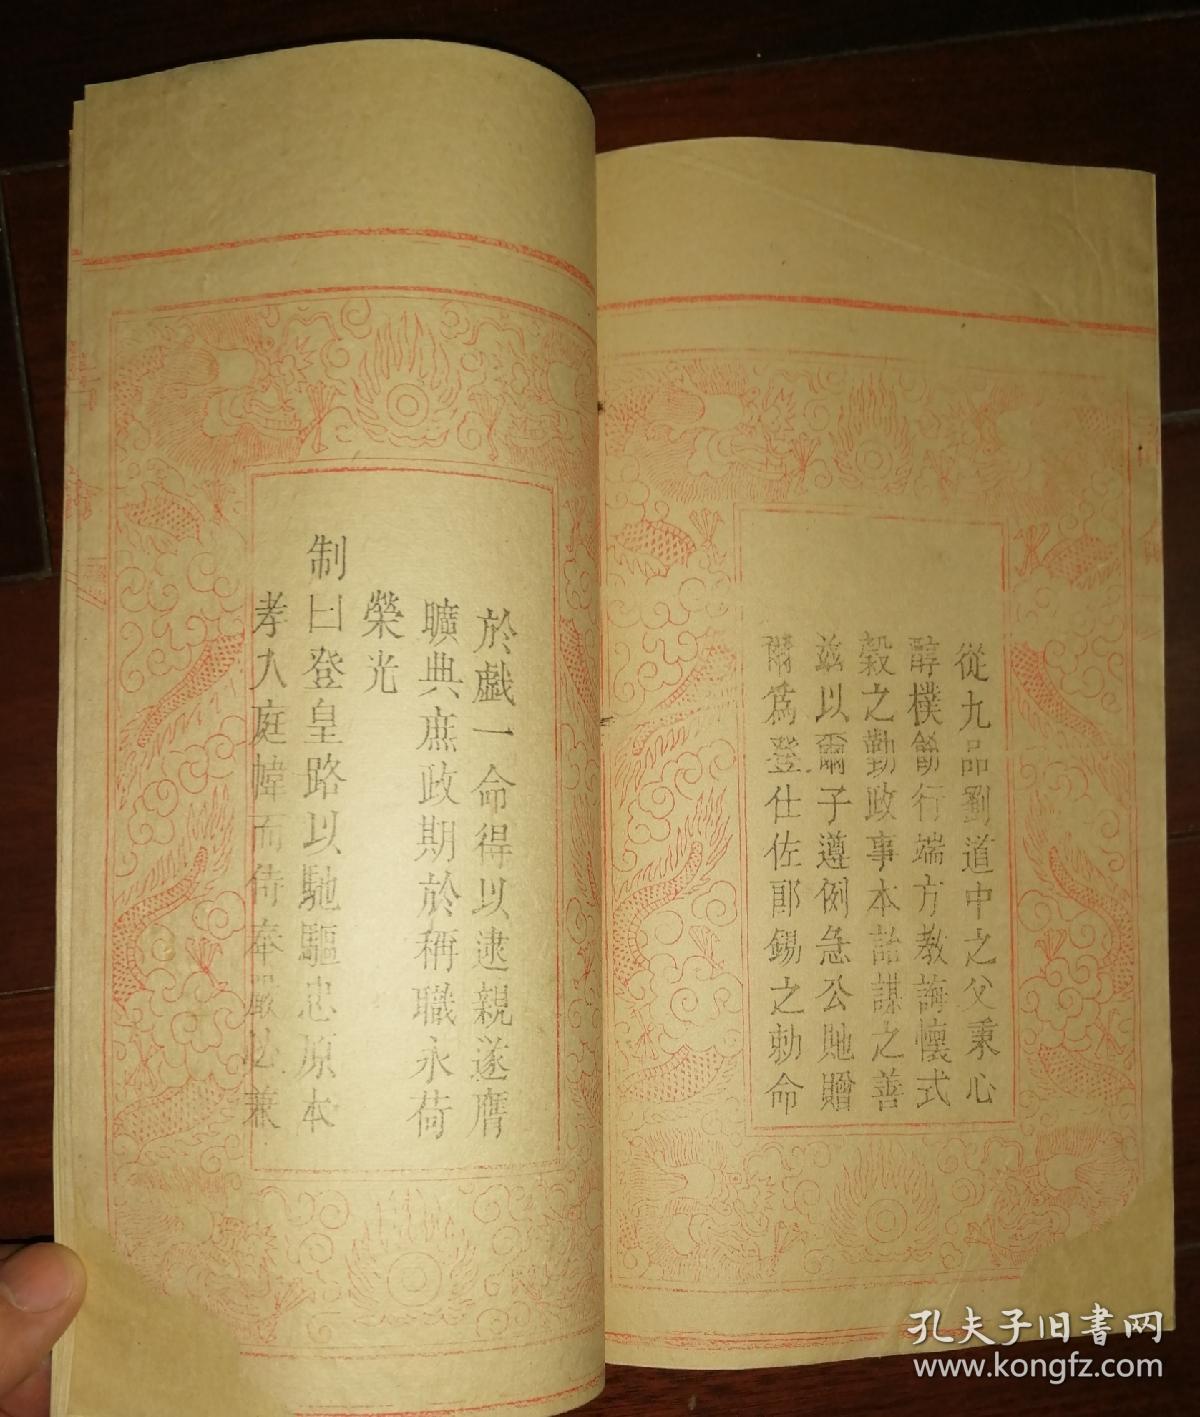 從九品劉道中之父秉心
醇樸飭行端方教誨懷式
穀之勤政事本詒謀之善
兹以爾子遵例急公貤贈
爾爲登仕佐郎錫之勅命
於戲一命得以逮親遂膺
曠典庶政期於稱職永荷
榮光
制曰登皇路以馳驅忠原本
孝入庭幃而侍奉嚴必兼
孔夫子旧書网
www.kongfz.com